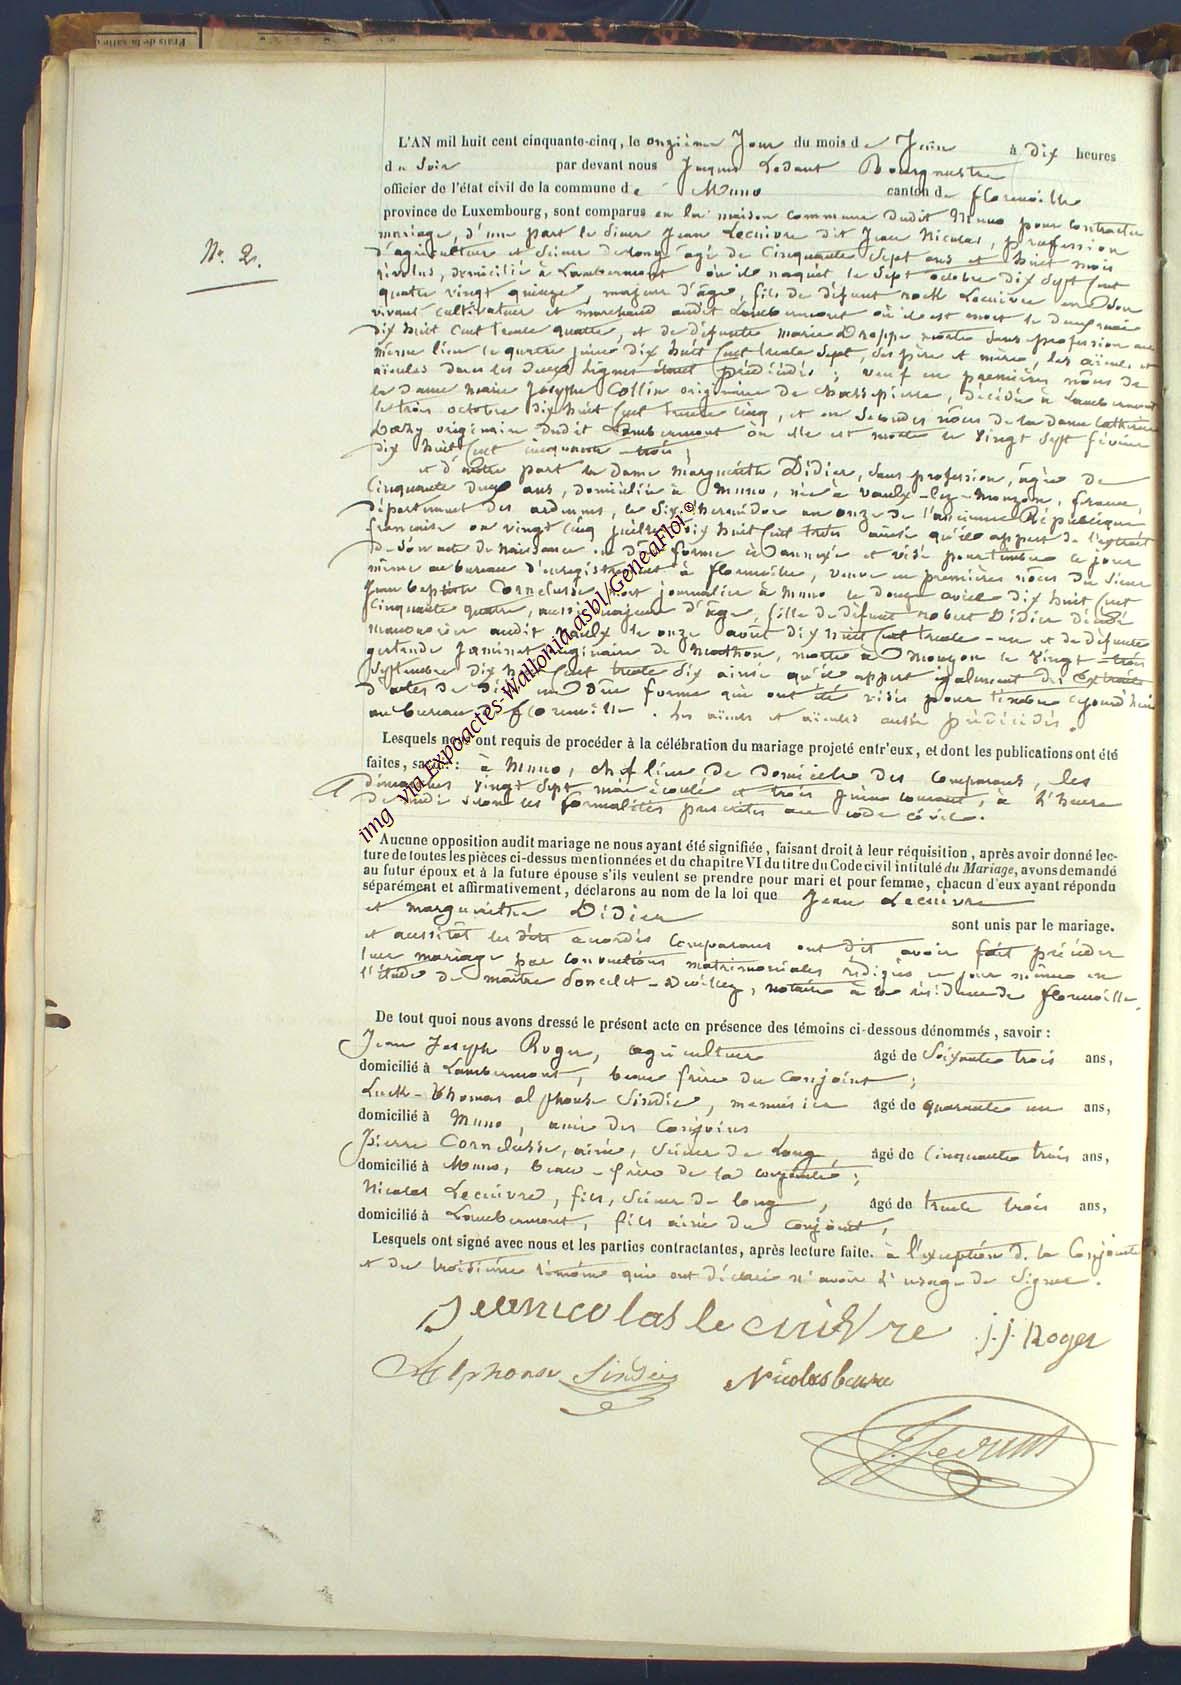 L'AN mil huit cent cinquante-cinq, le onzième Jour du mois de Juin à dix heures
du Soir par devant nous Jacques Ledant Bourgmestre
officier de l'état civil de la commune de Muno canton de florenville
province de Luxembourg, sont comparus en la maison commune dudit Muno pour contracter
N° 2.
mariage, d'une part le Sieur Jean Lecuivre dit Jean Nicolas, profession
d'agriculteur et Scieur de long âgé de Cinquante Sept ans et huit mois
révolus, domicilié à Lambermont où il naquit le Sept octobre dix Sept Cent
quatre vingt quinze, majeur d'âge, fils de défunt Lecuivre en Son
vivant cultivateur et marchand audit Lambermont où il est mort le deux mai
dix huit Cent trente quatre, et de défunte marie Droppe morte Sans profession au
même lieu le quatre juin dix huit Cent trente Sept, Ses père et mère, les aïeuls et
aïeules dans les deux lignes étant prédécédés ; veuf en premières nôces de
la dame marie Josephe Collin originaire de chassepierre, décédée à Lambermont
le trois octobre dix huit Cent trente cinq, et en Secondes nôces de la dame Catherine
originaire dudit Lambermont où elle est morte le vingt Sept février
dix huit Cent cinquante trois ;
et d'autre part la dame marguerite Didier, Sans profession, âgée de
Cinquante deux ans, domiciliée à Muno, née à vaulx-lez-mouzon, france,
département des ardennes, le Six thermidor an onze de l'ancienne République
francaise ou vingt cinq juillet dix huit Cent trois ainsi qu'il appert de l'extrait
de Son acte de naissance en due forme ci annexé et visé pour timbre ce jour
même au bureau d'enregistrement à florenville, veuve en premières nôces du Sieur
Jean baptiste Cornelusse mort journalier à Muno le douze avril dix huit Cent
Cinquante quatre, aussi majeure d'âge, fille de défunt robert Didier décédé
manouvrier audit vaulx le onze août dix huit Cent trente-un et de défunte
gertrude Jaminet originaire de Mathon, morte à Mouzon le vingt-trois
Septembre dix huit Cent trente Six ainsi qu'il appert également des extraits
d'actes de décès en due forme qui ont été visés pour timbre aujourd'hui
au bureau de florenville. Les aïeuls et aïeules aussi prédécédés.
Lesquels nous ont requis de procéder à la célébration du mariage projeté entr'eux, et dont les publications ont été
faites, savoir : à Muno, chef lieu de domicile des comparants, les
dimanches vingt Sept mai écoulé et trois juin courant, à l'heure
de midi selon les formalités prescrites au code civil.
Aucune opposition audit mariage ne nous ayant été signifiée, faisant droit à leur réquisition, après avoir donné lec-
ture de toutes les pièces ci-dessus mentionnées et du chapitre VI du titre du Code civil intitulé du Mariage, avons demandé
au futur époux et à la future épouse s'ils veulent se prendre pour mari et pour femme, chacun d'eux ayant répondu
séparément et affirmativement, déclarons au nom de la loi que Jean Lecuivre
et marguerithe Didier sont unis par le mariage.
et aussitôt les dits accordés Comparans ont dit avoir fait précéder
leur mariage par conventions matrimoniales rédigées ce jour même en
l'étude de maître Poncelet, notaire à la résidence de florenville.
De tout quoi nous avons dressé le présent acte en présence des témoins ci-dessous dénommés, savoir :
Jean Joseph Roger, agriculteur âgé de Soixante trois ans,
domicilié à Lambermont, beau frère du Conjoint ;
Luck-Thomas alphonse Sindic, menuisier âgé de quarante un ans,
domicilié à Muno, ami des Conjoints
Pierre Cornelusse, ainé, Scieur de Long, âgé de Cinquante trois ans,
domicilié à Muno, beau-frère de la conjointe ;
Nicolas Lecuivre, fils, Scieur de long, âgé de trente trois ans,
domicilié à Lambermont, fils ainé du conjoint,
Lesquels ont signé avec nous et les parties contractantes, après lecture faite. à l'exception de la Conjointe
et du troisième témoin qui ont déclaré n'avoir l'usage de Signer.
Jeannicolas lecuivre J.J. Roger
Alphonse Sindic Nicolas lecuivre
J. Ledant
img via Expoactes-Wallonia.asbl/GeneaFloi ©